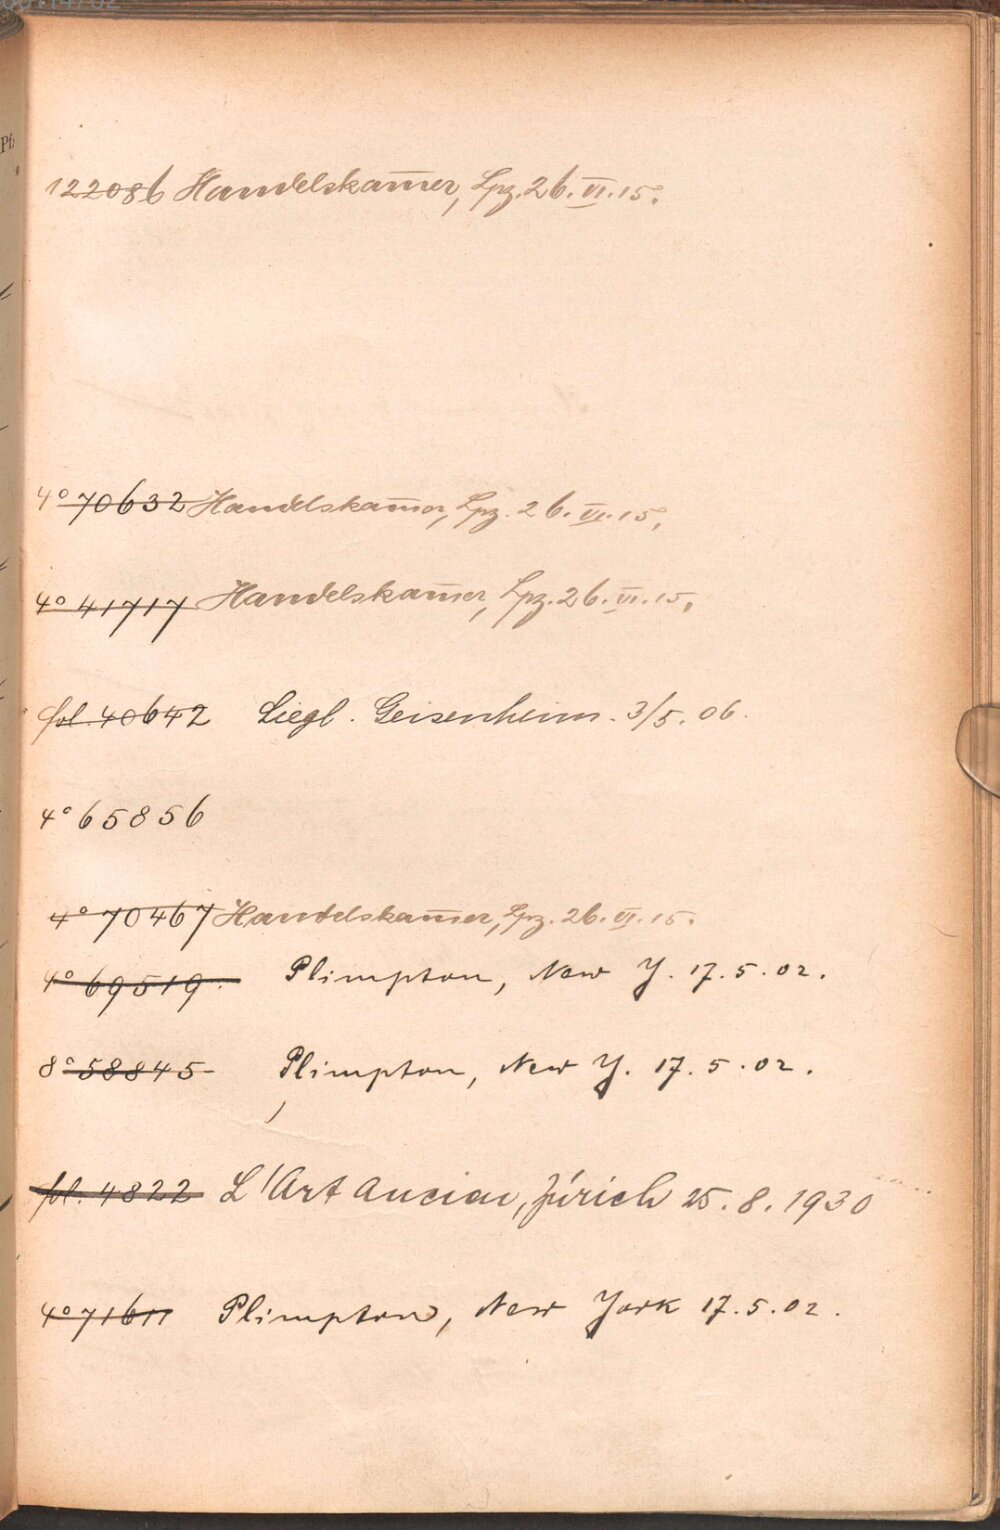 122086 Handelskam̅er, Lpz. 26. VI. 15.
4° 70632 Handelskam̅er, Lpz. 26. VI. 15.
4° 41717 Handelskam̅er, Lpz. 26. VI. 15.
fol. 40642 Liegl. Geisenheim. 3/5. 06.
4° 65856
4° 70467 Handelskam̅er, Lpz. 26. VI. 15.
4° 69519. Plimpton, New Y. 17. 5. 02.
8° 58845 Plimpton, New Y. 17. 5. 02.
fol. 4822 L'Art Ancien, Zürich 25. 8. 1930
4° 71611 Plimpton, New York 17. 5. 02.